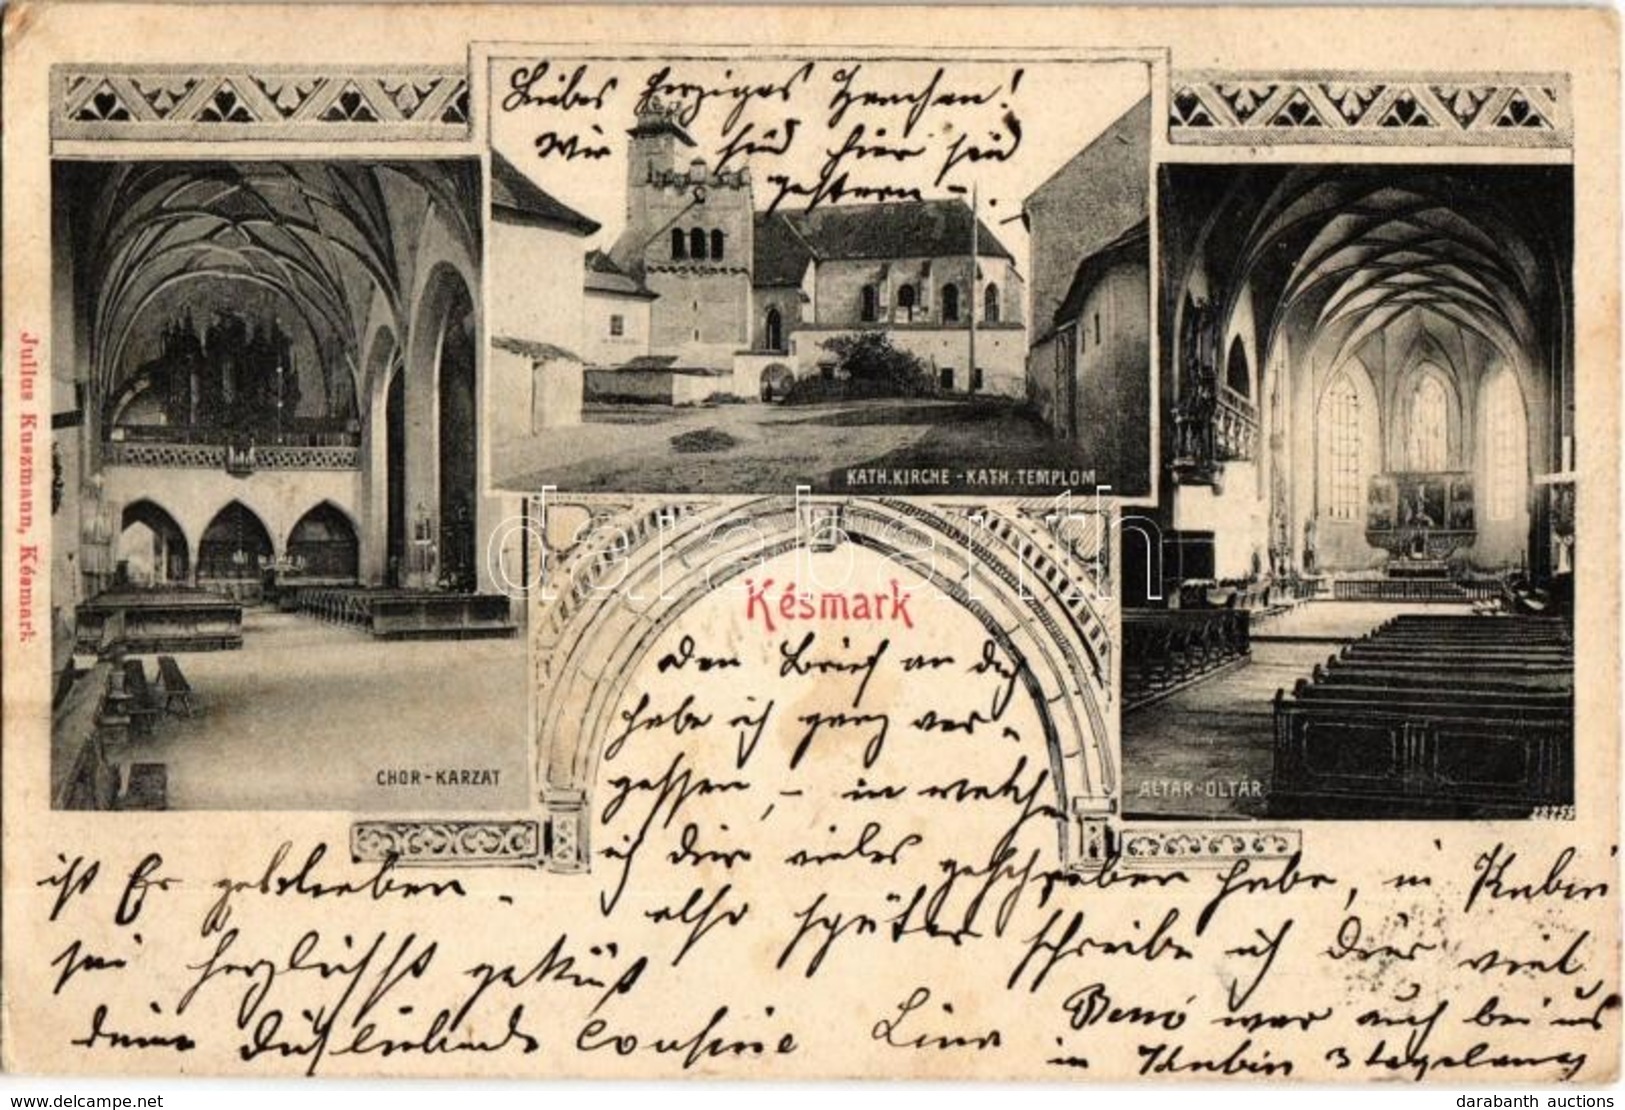 Liebes herziges
Wir sind hier seid
gestern -.
KATH. KIRCHE - KATH. TEMPLOM
darabanth
Késmark
Julius Kuszmann, Késmark
den Brief an dich
habe ich ganz ver-
gessen, - in welchem
CHOR - KARZAT
ALTAR - OLTÁR
28755
ich dir vieles geschrieben habe, in Kubin
ist Er geblieben. also später schreibe ich dir viel
sei herzlichst geküßt
deine dich liebende Cousine Lina
Benö war auch bei uns
in Kubin 3 tagelang
delcampe.net
darabanth auctions